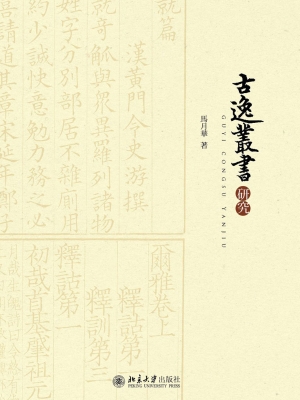 古逸叢書
研究
GUYI CONGSU YANJIU
馬月華 著
就篇
漢黃門令史游撰
就奇觚與眾異羅列諸物
字分別部居不雜廁用
約少誠快意勉力務之必
喜請道其章宋延年鄭
爾雅卷上
釋詁第一
釋訓第三
釋詁第一
初哉首基肇祖元
北京大学出版社
PEKING UNIVERSITY PRESS